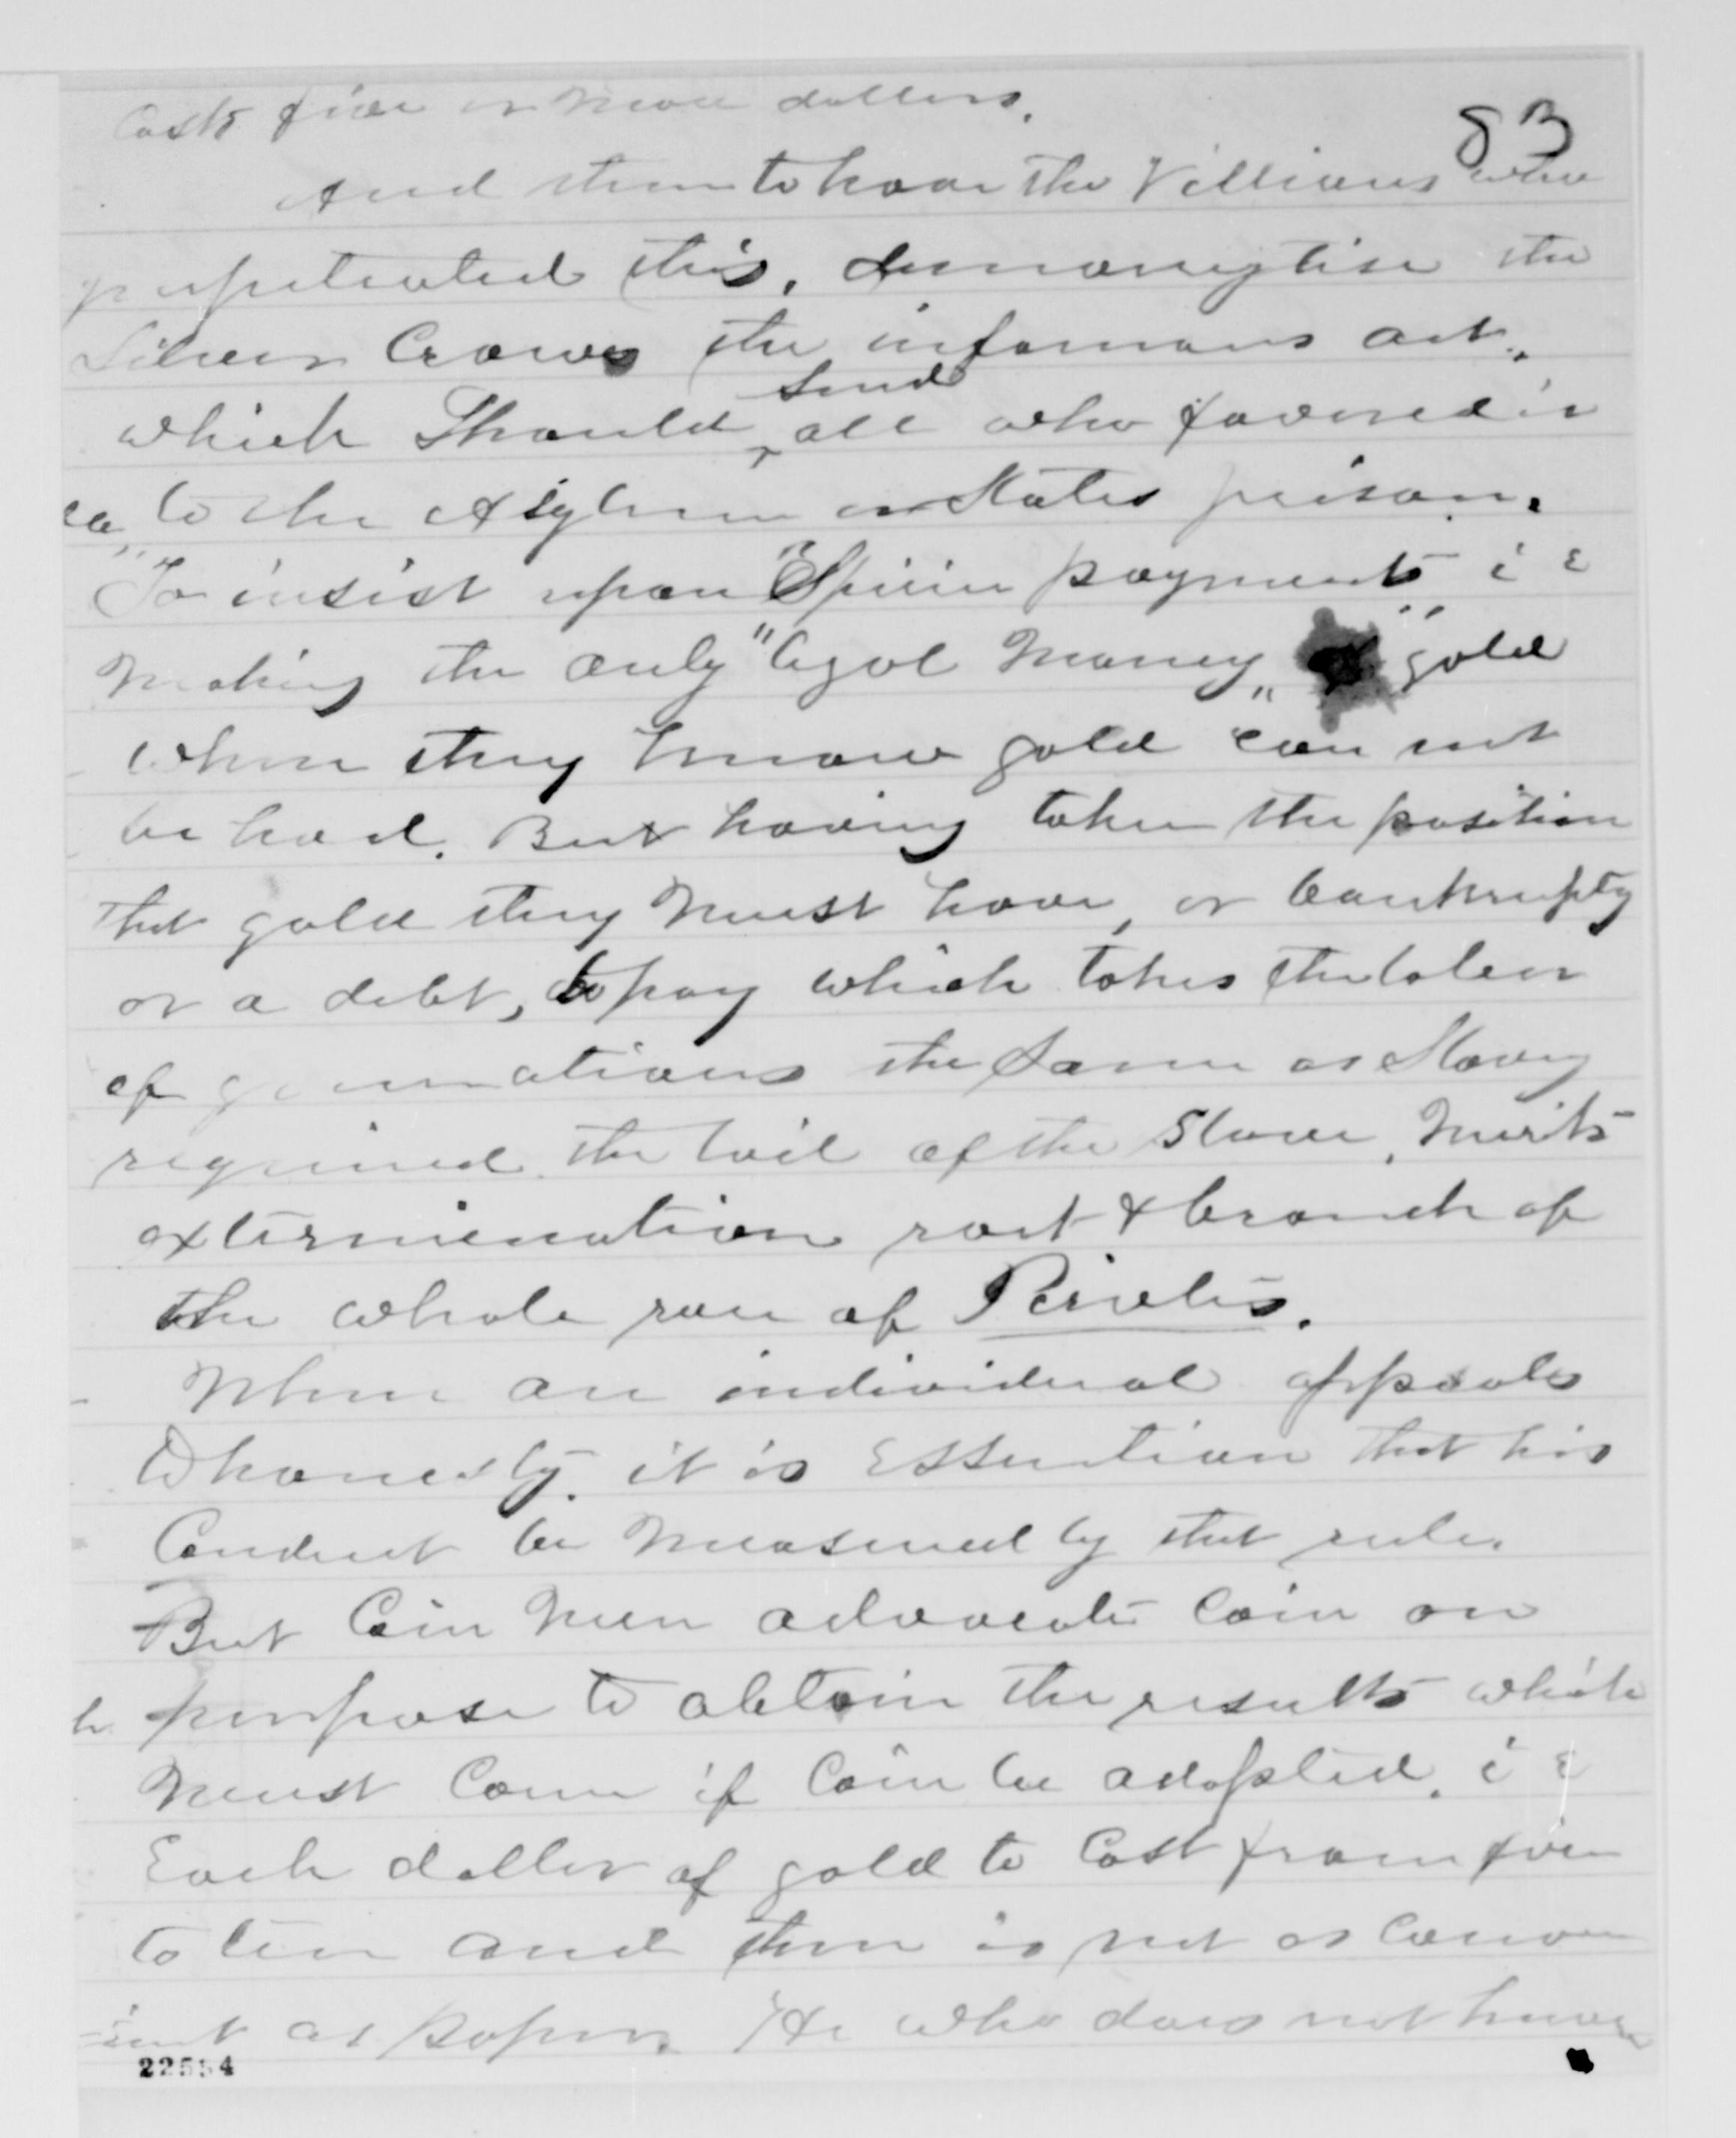 Costs five or more dollars.
83
And then to have the Villians who
perpetrated this, demoneytise the
Silver Crowns the infamous act,
send
which Should all who favored it
to the Asylum or States prison.
"To insist upon "Specie payments" i e
Making the only "legal Money" gold
when they know gold can not
be had. But having taken the position
that gold they must have, or bankruptcy
or a debt, to pay which takes the labor
of generations the same as Slavery
required the toil of the Slave, merits
extermination root & branch of
the whole race of Pirates.
When an individual appeals
to honesty. it is Essention that his
Conduct be measured by that rule.
But Coin men advocate Coin on
purpose to obtain the results which
must Come if Coin be adopted. i e
Each dollar of gold to Cost from five
to ten and then is not as Conven
=ient as paper. He who does not know
22554